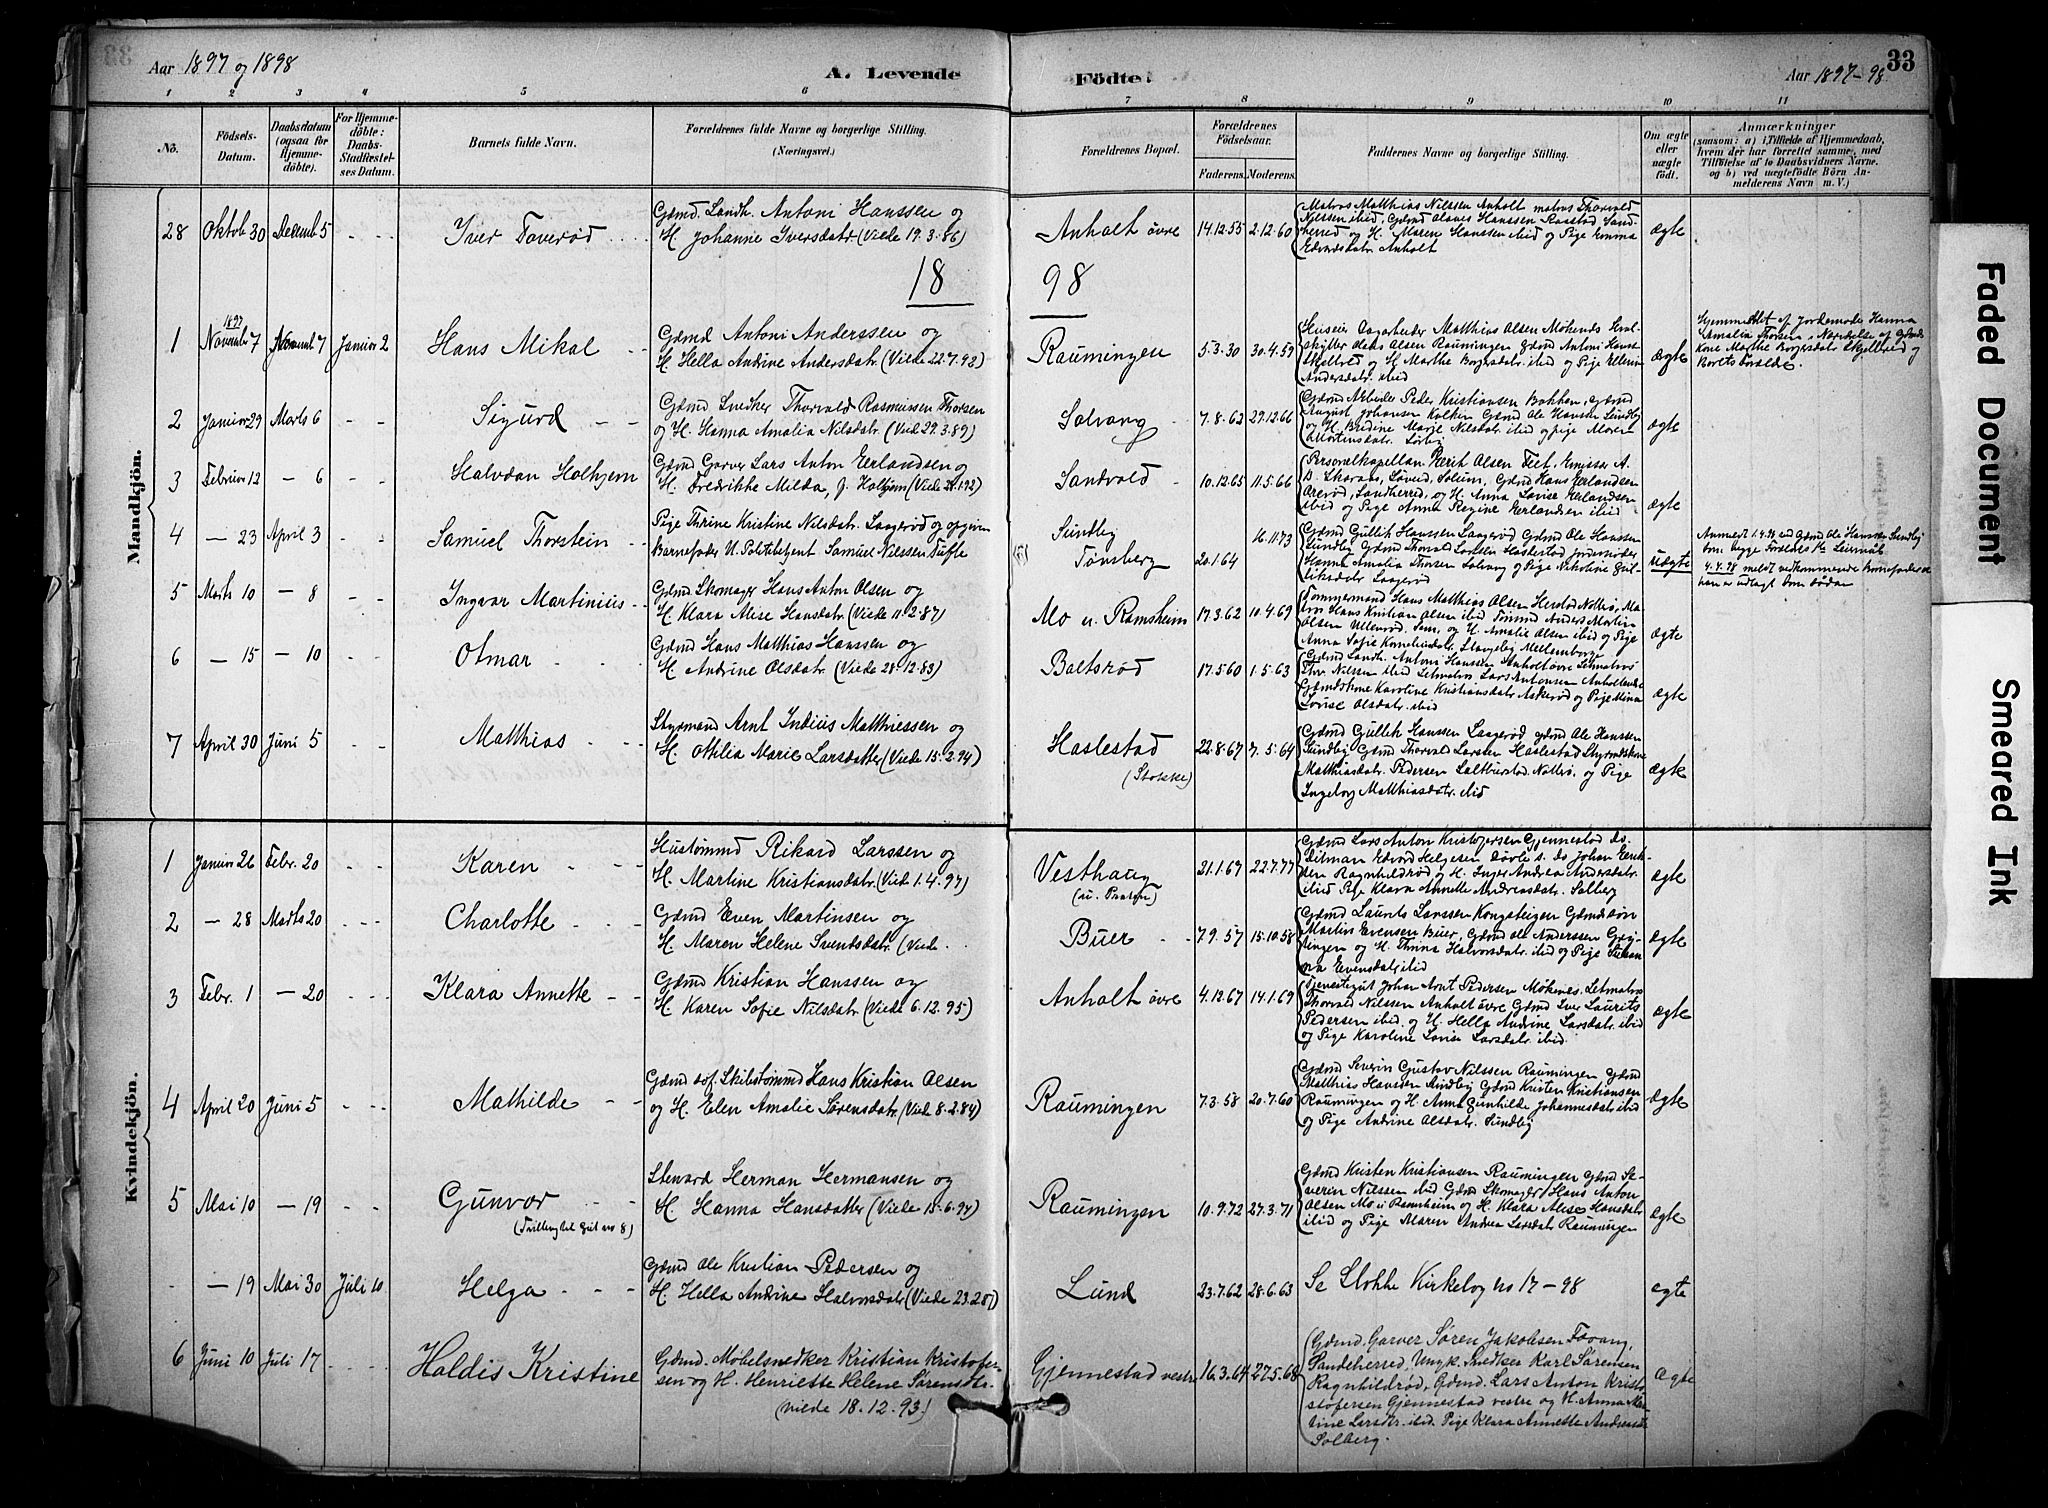 33
Aar 1897 og 1898
A. Levende
Födte.
Aar 1897-98.
1 2 3 4 5 6 7 8 9 10 11
No.
Födsels-Datum.
Daabsdatum (ogsaa for Hjemme-döbte).
For Hjemme-döbte: Daabs-Stadfæstel-ses Datum.
Barnets fulde Navn.
Forældrenes fulde Navne og borgerlige Stilling.
(Næringsvei.)
Forældrenes Bopæl.
Forældrenes Födselsaar.
Faderens. Moderens.
Faddernes Navne og borgerlige Stilling.
Om ægte eller uægte födt.
Anmærkninger
(saasom: a) i Tilfælde af Hjemmedaab,
hvem der har forrettet samme, med
Tilföielse af to Daabsvidners Navne,
og b) ved uægtefödte Börn An-
melderens Navn m. V.)
Mandkjön.
28 Oktob 30 Decemb 5 - - - Iver Toverød Gdmd. Landh. Antoni Hanssen og
H. Johanne Iversdatr. (Viede 19.3.86)
Anholt övre 14.12.55 2.12.60
Matros Matthias Nilssen Anholt matros Thorvald
Nilssen ibid, Gdmd Olaves Hanssen Raastad Sand-
herred og H. Maren Hanssen ibid og Pige Emma
Edvardsdatr. Anholt
ægte
18 98
1 1897 Novemb 7 Novemb 7 Januar 2 Hans Mikal Gdmd Antoni Anderssen og
H. Hella Andrine Andersdatr. (Viede 22.7.92)
Raumingen 5.3.30 30.4.59
Huseier Dagarbeider Matthias Olsen Mökenes
Olsen Raumingen Gdmd Antoni Hans
Skjelbred og H. Marthe Borgersdatr. ibid og Pige Ellevine
Andersdatr. ibid
ægte
Hjemmedöbt af Jordemoder Hanna
Amalia Thorsen, Nærværelse af Gdmds
Kone Marthe Borgersdatr. Skjelbred og
Barnets Forældre.
2 Januar 29 Marts 6 - - Sigurd Gdmd Snedker Thorvald Rasmussen Thorsen
og H. Hanna Amalia Nilsdatr. (Viede 29.3.89)
Solvang 7.8.62 29.12.66
Gdmd Arbeider Peder Kristiansen Bakken, Gdmd
August Johansen Kolkin Gdmd Ole Hansen Sundby
og H. Bredine Marie Nilsdatr. ibid og Pige Maren
Mortinsdatr. Sörby
ægte
3 Februar 12 - 6 - - Halvdan Holhjem Gdmd Garver Lars Anton Erlandsen og
H. Fredrikke Milda, f. Holhjem (Viede 28.1.92)
Sandvold 10.12.65 11.5.66
Personelkapellan Gerit Olsen Teet, Emissær A.
D. Skavaas, Löveid, Solum, Gdmd Hans Erlandsen
Areröd, Sandherred, og H. Anna Lovise Erlandsen
ibid og Pige Anna Regine Erlandsen ibid
ægte
4 - 23 April 3 - - Samuel Thorstein Pige Thrine Kristine Nilsdatr. Laageröd og opgiven
Barnefader U. Politibetjent Samuel Nilssen Tufte
Sundby 16.11.73
Tönsberg 20.1.64
Gdmd Gullik Hanssen Laageröd Gdmd Ole Hanssen
Sundby Gdmd Thorvald Larssen Haslestad Jordemoder
Hanna Amalia Thorsen Solvang og Pige Nikoline Gul-
liksdatr. Laageröd
uægte
Anmeldt 1.4.98 ved Gdmd Ole Hanssen Sundby
4.4.98 meldt vedkommende Barnefader at
han er udlagt som saadan
5 Marts 10 - 8 - - Ingvar Martinius Gdmd Skomager Hans Anton Olsen og
H. Klara Alise Hansdatr. (Viede 11.2.87)
Mo u. Ramsheim 17.3.62 10.4.69
Tømmermand Hans Matthias Olsen Herstad Nötterö, Ma-
tros Hans Kristian Olsen ibid Tømmd Anders Martin
Olsen Ulleröd. Sem, og H. Amalie Olsen ibid og Pige
Anna Sofie Korneliusdatr. Slangeby Mellemborge
ægte
6 - 15 - 10 - - Otmar Gdmd Hans Matthias Hanssen og
H. Andrine Olsdatr. (Viede 28.12.83)
Baltsröd 17.5.60 1.5.63
Gdmd Landh. Antoni Hanssen Anholt övre Letmatros
Thv. Nilssen ibid Letmatros Lars Antonsen Anholt nedre
Gdmdskone Karoline Kristiansdatr. Askeröd og Pige Mina
Lovise Olsdatr. ibid
ægte
7 April 30 Juni 5 - - Matthias Styrmand Arnt Indius Matthiessen og
H. Othilia Marie Larsdatter (Viede 15.2.94)
Haslestad (Stokke) 22.8.67 7.5.64
Gdmd Gullik Hanssen Laageröd Gdmd Ole Hanssen
Sundby Gdmd Thorvald Larssen Haslestad Styrmdskone
Matthiasdatr. Pedersen Saltburstad, Nötterö, og Pige
Ingeborg Matthiasdatr. ibid
ægte
Kvindekjön.
1 Januar 26 Febr. 20 - - Karen Hustømmd Rikard Larssen og
H. Martine Kristiansdatr. (Viede 1.4.97)
Vesthaug 21.1.67 22.7.77
Gdmd Lars Anton Kristofersen Gjennestad ds.
Ditman Edvard Helgesen Dövle s. ds Johan Erik-
sen Ragnhildröd og H. Inger Andrea Andersdatr.
ibid Pige Klara Annette Andreasdatr. Solberg
ægte
2 - 28 Marts 20 - - Charlotte Gdmd Even Martinsen og
H. Maren Helene Svendsdatr. (Viede
Buer 7.9.57 15.10.58
Gdmd Laurits Larssen Kongsteigen Gdmdssön
Martin Evensen Buer, Gdmd Ole Anderssen Gryt-
ingen og H. Thrina Halvorsdatr. ibid og Pige Susan
na Evensdatr. ibid
ægte
3 Febr. 1 - 20 - - Klara Annette Gdmd Kristian Hanssen og
H. Karen Sofie Nilsdatr. (Viede 6.12.95)
Anholt övre 4.12.67 14.1.69
Tjenestegut Johan Arnt Pedersen Mökenes, Letmatros
Thorvald Nilssen Anholt övre Gdmd Iver Laurits
Pedersen ibid. og H. Hella Andrine Larsdatr. ibid
og Pige Karoline Lovise Larsdatr. ibid.
ægte
4 April 20 Juni 5 - - Mathilde Gdmd Skibstømmd Hans Kristian Olsen
og H. Elen Amalie Sörensdatr. (Viede 8.2.84)
Raumingen 7.3.58 20.7.60
Gdmd Severin Gustav Nilssen Raumingen Gdmd
Matthias Hanssen Sundby Gdmd Kristen Kristiansen
Raumingen og H. Anna Gunhilde Johannesdatr. ibid
og Pige Andrine Olsdatr. Sundby
ægte
5 Mai 10 - 19 - - Gunvor Steward Herman Hermansen og
H. Hanna Hansdatter (Viede 15.6.94)
Raumingen 10.9.72 27.3.71
Gdmd Kristen Kristiansen Raumingen Gdmd Se-
verin Nilssen ibid Gdmd Skomager Hans Anton
Olsen Mo u Ramsheim og H. Klara Alise Hansdatr.
ibid og Pige Maren Andrea Larsdatr. Raumingen
ægte
- 19 Mai 30 Juli 10 Helga Gdmd Ole Kristian Pedersen og
H. Hella Andrine Halvorsdatr (Viede 23.2.87)
Lund 23.7.62 28.6.63
Se Stokke Kirkebog No 17-98
ægte
6 Juni 10 Juli 17 - - Haldis Kristine Gdmd. Møbelsnedker Kristian Kristofer-
sen og H. Henriette Helene Sørensdtr.
(viede 18.12.93)
Gjennestad vestr 16.3.64 27.5.68
Gdmd. Garver Søren Jakobsen Fevang,
Sandeherred, Ungk. Snedker Karl Sørensen
Ragnhildrød, Gdmd. Lars Anton Krist-
stofersen Gjennestad vestre og H. Anna Ma-
thine Larsdtr. ibid. Pige Klara Annette Andreasdtr.
Solberg.
ægte
Faded Document
Smeared Ink